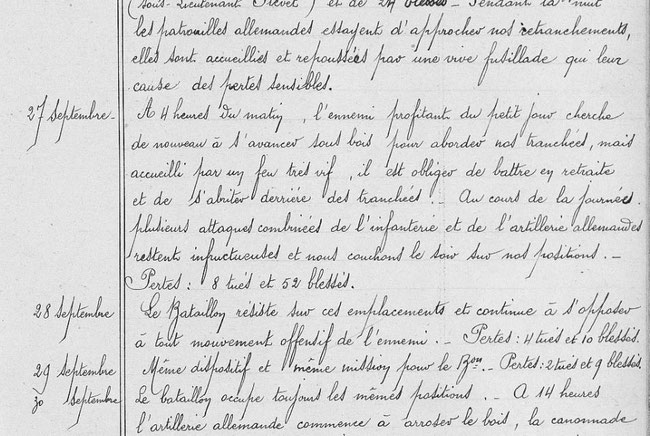 (sous-Lieutenant Prevet) et de 24 blessés - Pendant la nuit
les patrouilles allemandes essayent d'approcher nos retranchements,
elles sont accueillies et repoussées par une vive fusillade qui leur
cause des pertes sensibles.
27 Septembre - A 4 heures du matin, l'ennemi profitant du petit jour cherche
de nouveau à s'avancer sous bois pour aborder nos tranchées, mais
accueilli par un feu très vif, il est obligé de battre en retraite
et de s'abriter derrière des tranchées. - Au cours de la journée,
plusieurs attaques combinées de l'infanterie et de l'artillerie allemandes
restent infructueuses et nous couchons le soir sur nos positions. -
Pertes : 8 tués et 52 blessés.
28 Septembre Le Bataillon résiste sur ces emplacements et continue à s'opposer
à tout mouvement offensif de l'ennemi. - Pertes : 4 tués et 10 blessés.
29 Septembre Même dispositif et même mission pour le Bon. - Pertes : 2 tués et 9 blessés.
30 Septembre Le bataillon occupe toujours les mêmes positions. - A 14 heures
l'artillerie allemande commence à arroser le bois, la canonnade